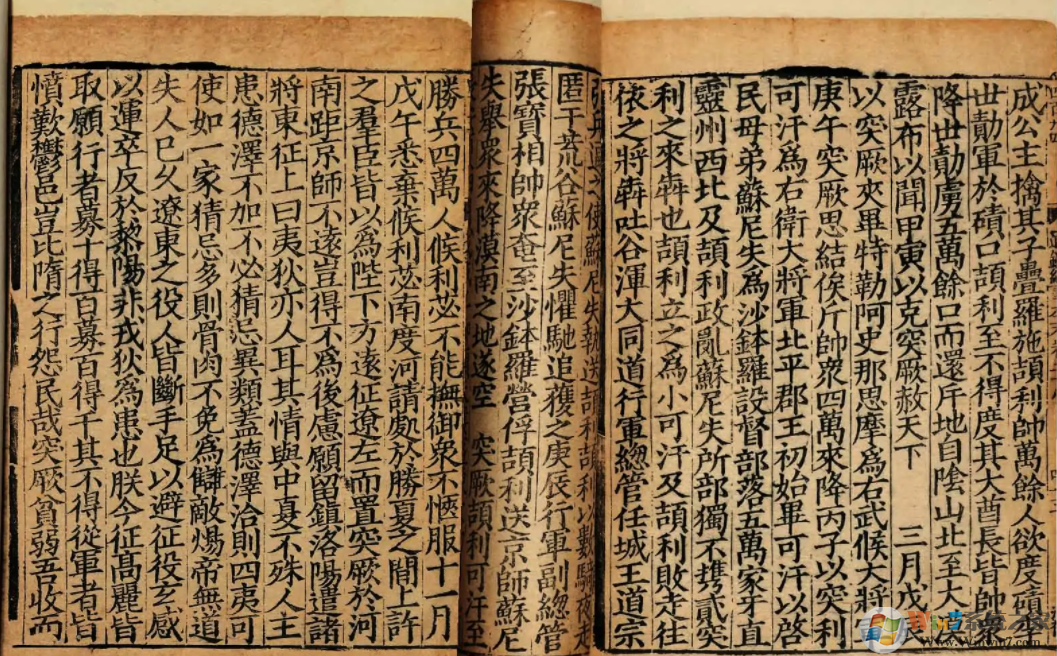 成公主擒其子疊羅施頡利帥萬餘人欲度磧
世勣軍於磧口頡利至不得度其大酋長皆帥衆
降世勣虜五萬餘口而還斥地自陰山北至大
露布以聞甲寅以克突厥赦天下　三月戊辰
以突厥夾畢特勒阿史那思摩爲右武候大將
庚午突厥思結俟斤帥衆四萬來降丙子以突利
可汗爲右衛大將軍北平郡王初始畢可汗以啓
民母弟蘇尼失爲沙鉢羅設督部落五萬家牙直
靈州西北及頡利政亂蘇尼失所部獨不攜貳突
利之來犇也頡利立之爲小可汗及頡利敗走往
依之將犇吐谷渾大同道行軍總管任城王道宗
之使蘇尼失執送頡利頡利以數騎夜走
匿于荒谷蘇尼失懼馳追獲之庚辰行軍副總管
張寶相帥衆奄至沙鉢羅營俘頡利送京師蘇尼
失舉衆來降漠南之地遂空　突厥頡利可汗至
勝兵四萬人候利苾不能撫御衆不愜服十一月
戊午悉棄候利苾南度河請處於勝夏之間上許
之羣臣皆以爲陛下方遠征遼左而置突厥於河
南距京師不遠豈得不爲後慮願留鎮洛陽遣諸
將東征上曰夷狄亦人耳其情與中夏不殊人主
患德澤不加不必猜忌異類蓋德澤洽則四夷可
使如一家猜忌多則骨肉不免爲讎敵煬帝無道
失人已久遼東之役人皆斷手足以避征役玄感
以運卒反於黎陽非戎狄爲患也朕今征高麗皆
取願行者募十得百募百得千其不得從軍者皆
憤歎鬱邑豈比隋之行怨民哉突厥貧弱吾收而